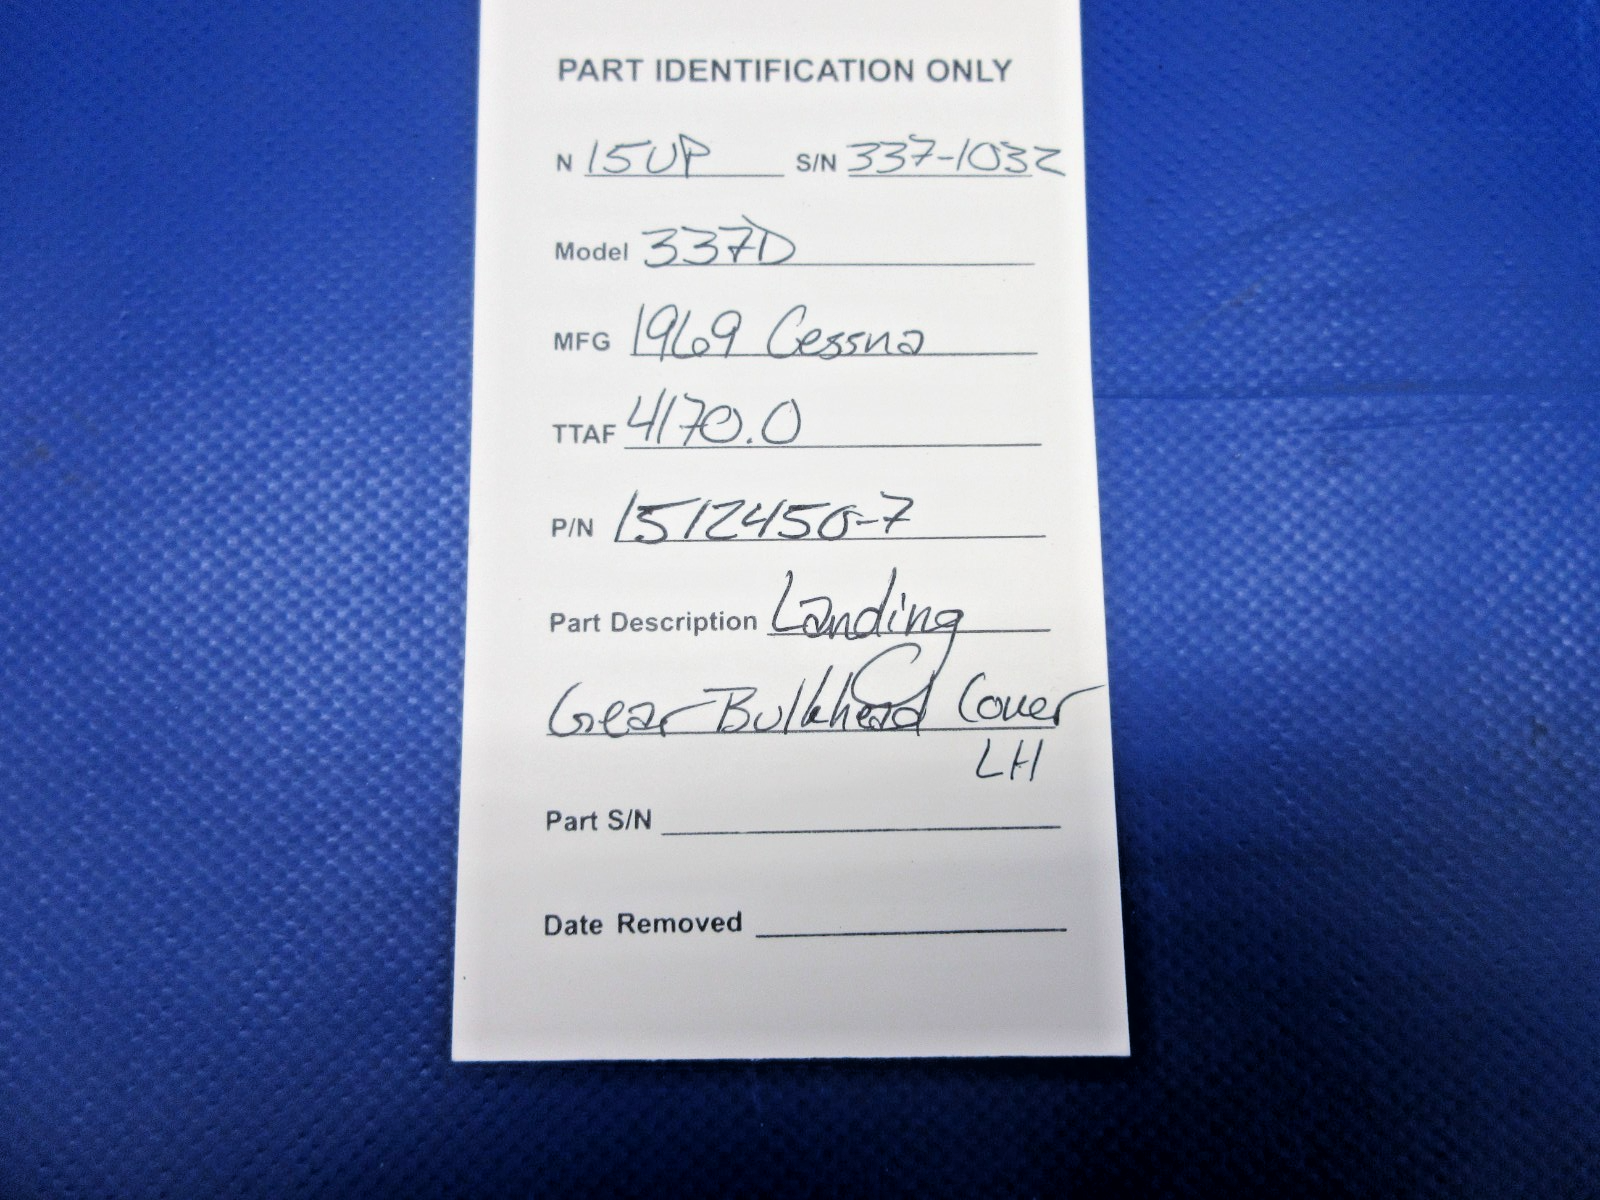 PART IDENTIFICATION ONLY
N 15UP S/N 337-1032
Model 337D
MFG 1969 Cessna
TTAF 4170.0
P/N 1512450-7
Part Description Landing
Gear Bulkhead Cover
LH
Part S/N
Date Removed